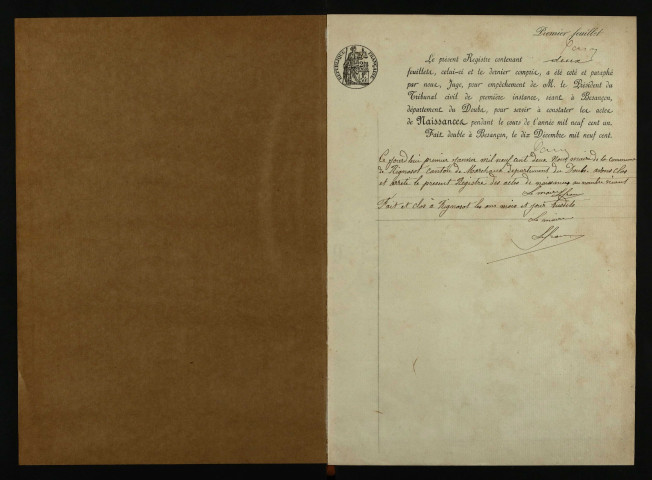 Premier feuillet
RÉPUBLIQUE FRANÇAISE
Le présent Registre contenant deux
feuillets, celui-ci et le dernier compris, a été coté et paraphé
par nous, Juge, pour empêchement de M. le Président du
Tribunal civil de première instance, séant à Besançon,
département du Doubs, pour servir à constater les actes
de Naissances pendant le cours de l'année mil neuf cent un.
Fait double à Besançon, le dix Décembre mil neuf cent.
Ce jourd'hui premier Janvier mil neuf cent deux Nous maire de la commune
de Rignosot canton de Marchaux département du Doubs avons clos
et arrêté le présent Registre des actes de naissances
Le maire
Fait et clos à Rignosot les an mois et jour susdits
Le maire